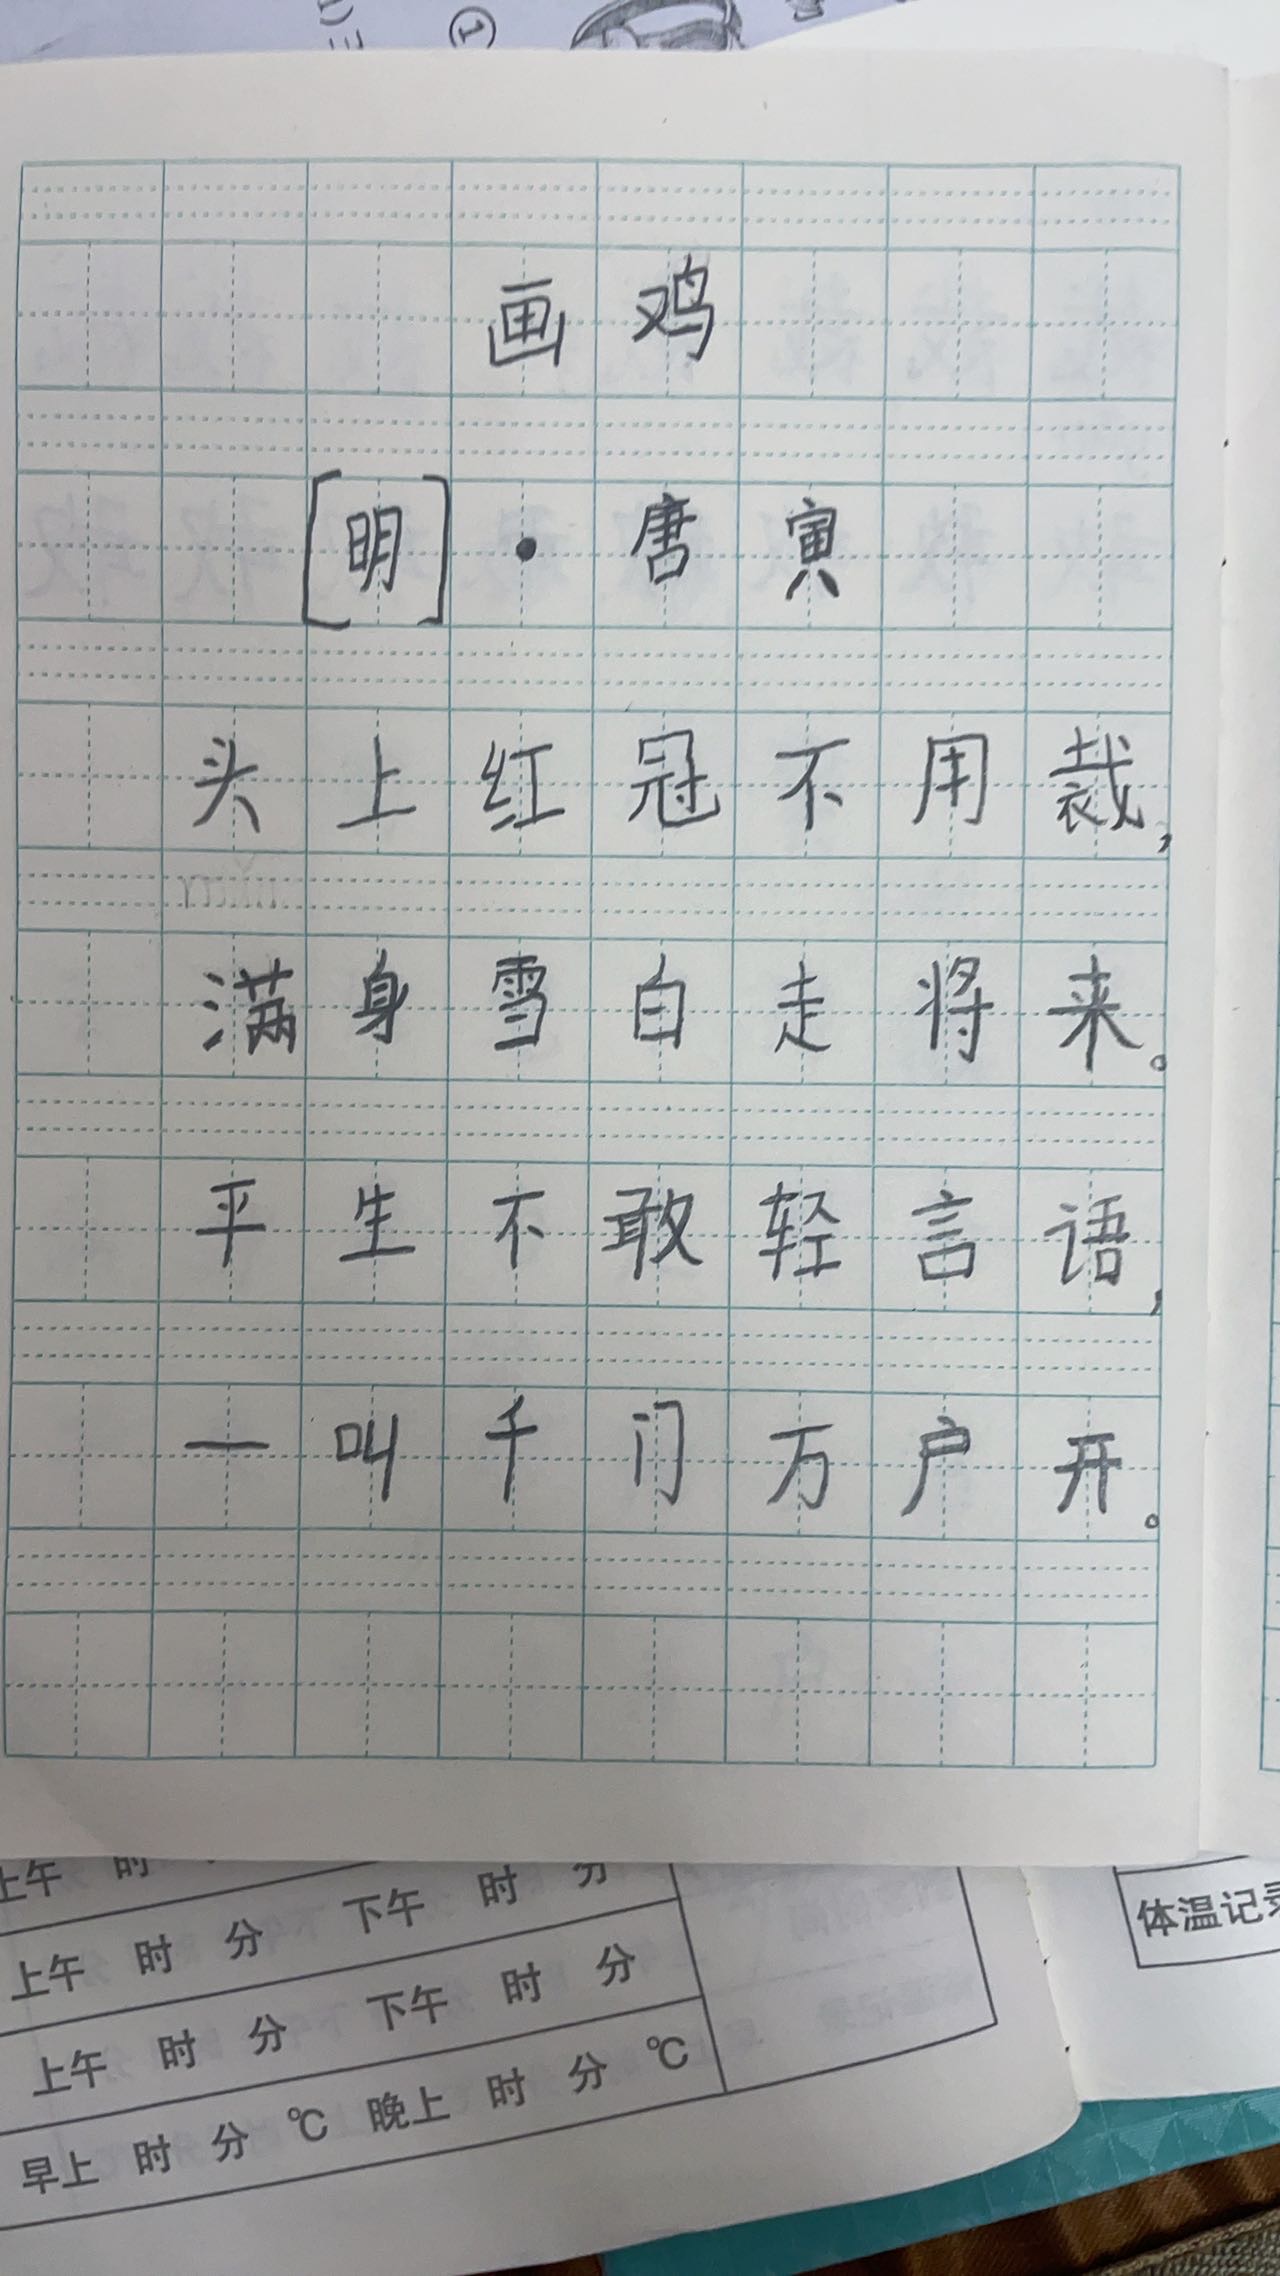 ①
画鸡
[明]·唐寅
头上红冠不用裁,
满身雪白走将来。
平生不敢轻言语,
一叫千门万户开。
上午 时
上午 时 分 下午 时 分
上午 时 分 下午 时 分
早上 时 分 ℃ 晚上 时 分 ℃
体温记录